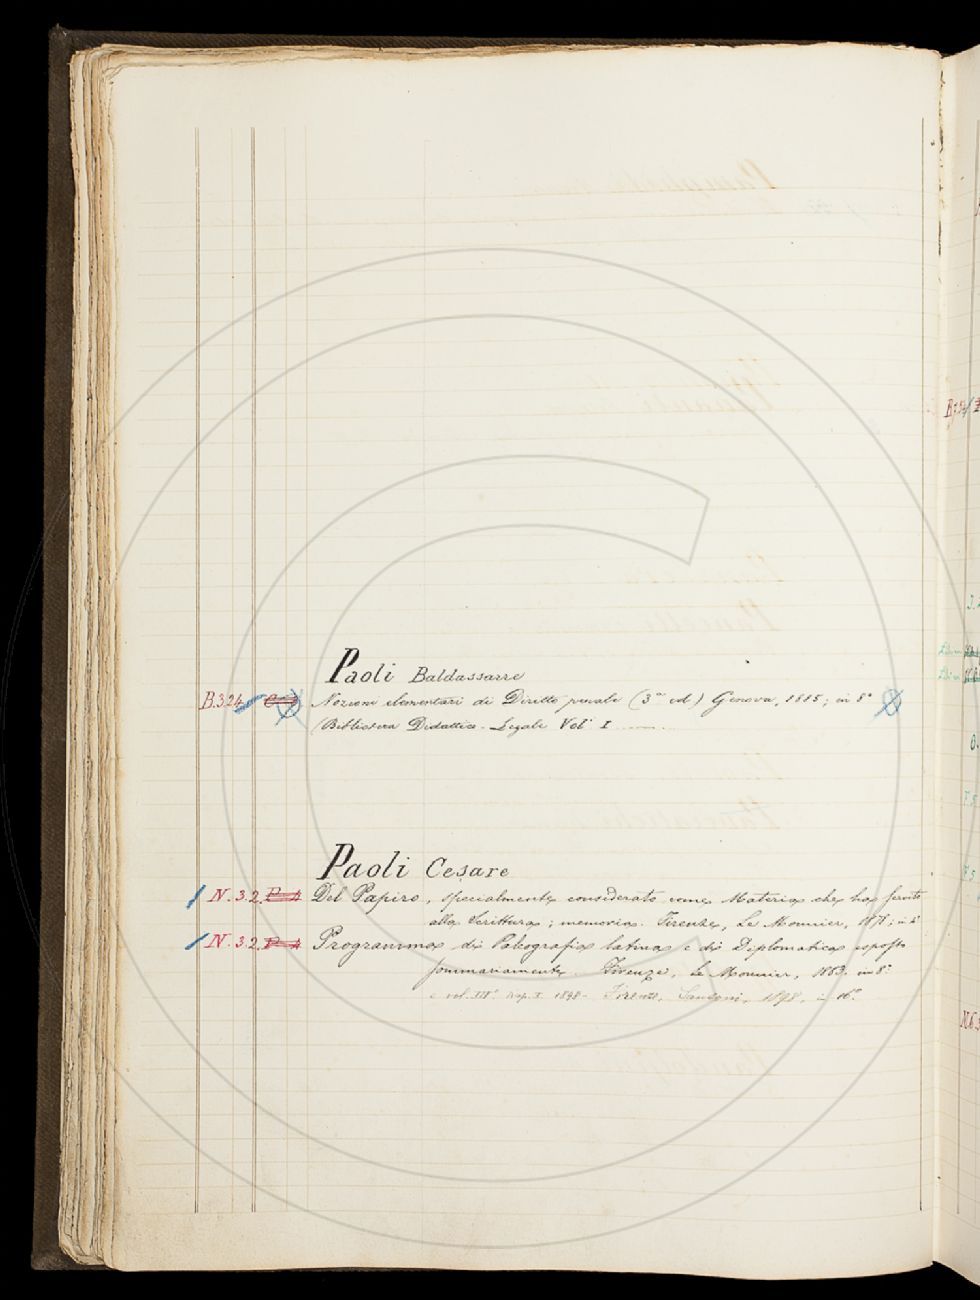 Paoli Baldassarre
B.3.24 Nozioni elementari di Diritto penale (3ª ed.) Genova, 1885; in 8°
(Biblioteca Didattica-Legale Vol. I
Paoli Cesare
N.3.2. Del Papiro, specialmente considerato come Materia che ha servito
alla Scrittura; memoria. Firenze, Le Monnier, 1878; in 8°
N.3.2. Programma di Paleografia latina e di Diplomatica esposto
sommariamente. Firenze, Le Monnier, 1883. in 8°
e vol. III° disp. I 1898 - Firenze, Sansoni, 1898, in 16°